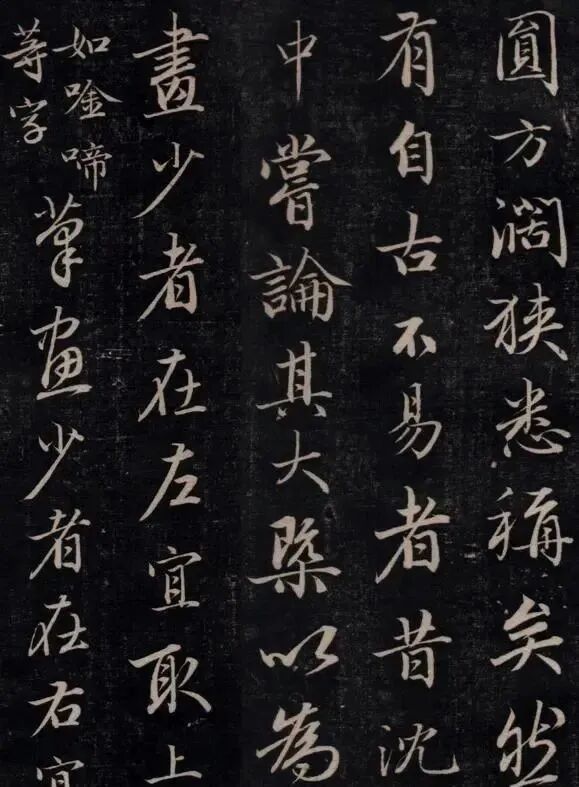 圓方濶狹悉稱矣然
有自古不易者昔沈
中嘗論其大槩以為
畫少者在左宜取上
如唫啼
等字
筆畫少者在右宜